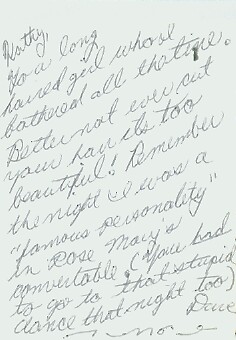 Kathy,
To a long
haired girl whose
bothered all that time.
Better not ever cut
your hair its too
beautiful! Remember
the night I was a
"famous personality"
in Rose Mary's
convertable. (You had
to go to that stupid
dance that night too)
Dave